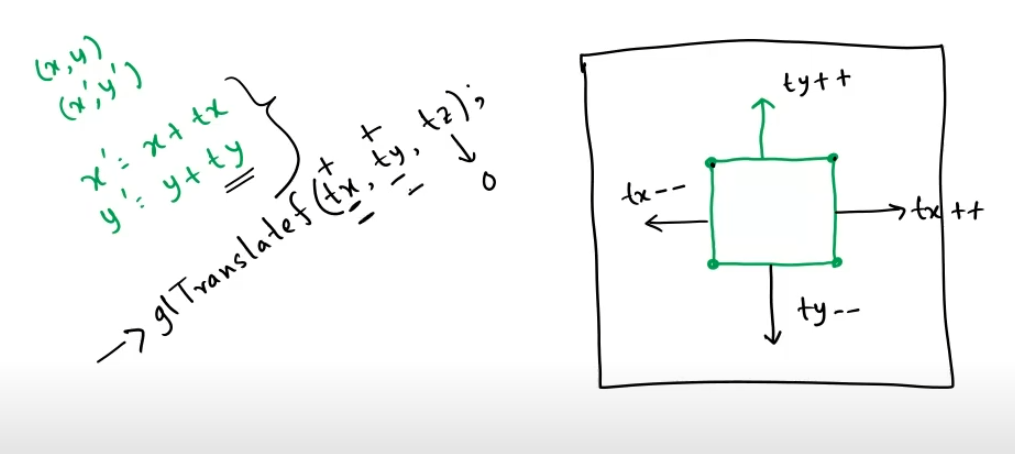 (x,y)
(x',y')
x' = x + tx
y' = y + ty
→ glTranslatef(tx, ty, tz);
+ +
- -
0
ty++
tx--
tx++
ty--